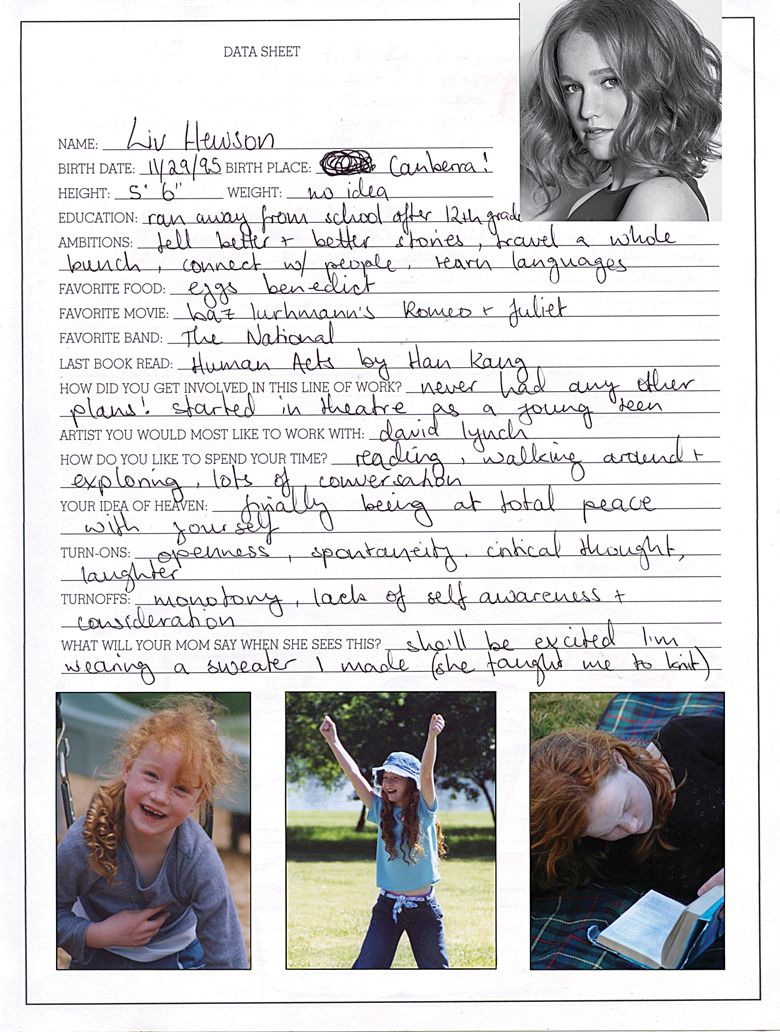 DATA SHEET
NAME: Liv Hewson
BIRTH DATE: 11/29/95 BIRTH PLACE: Canberra!
HEIGHT: 5' 6" WEIGHT: no idea
EDUCATION: ran away from school after 12th grade
AMBITIONS: tell better + better stories, travel a whole
bunch, connect w/ people, learn languages
FAVORITE FOOD: eggs benedict
FAVORITE MOVIE: baz lurhmann's Romeo + Juliet
FAVORITE BAND: The National
LAST BOOK READ: Human Acts by Han Kang
HOW DID YOU GET INVOLVED IN THIS LINE OF WORK? never had any other
plans! started in theatre as a young teen
ARTIST YOU WOULD MOST LIKE TO WORK WITH: david lynch
HOW DO YOU LIKE TO SPEND YOUR TIME? reading, walking around +
exploring, lots of conversation
YOUR IDEA OF HEAVEN: finally being at total peace
with yourself
TURN-ONS: openness, spontaneity, critical thought,
laughter
TURNOFFS: monotony, lack of self awareness +
consideration
WHAT WILL YOUR MOM SAY WHEN SHE SEES THIS? she'll be excited I'm
wearing a sweater I made (she taught me to knit)